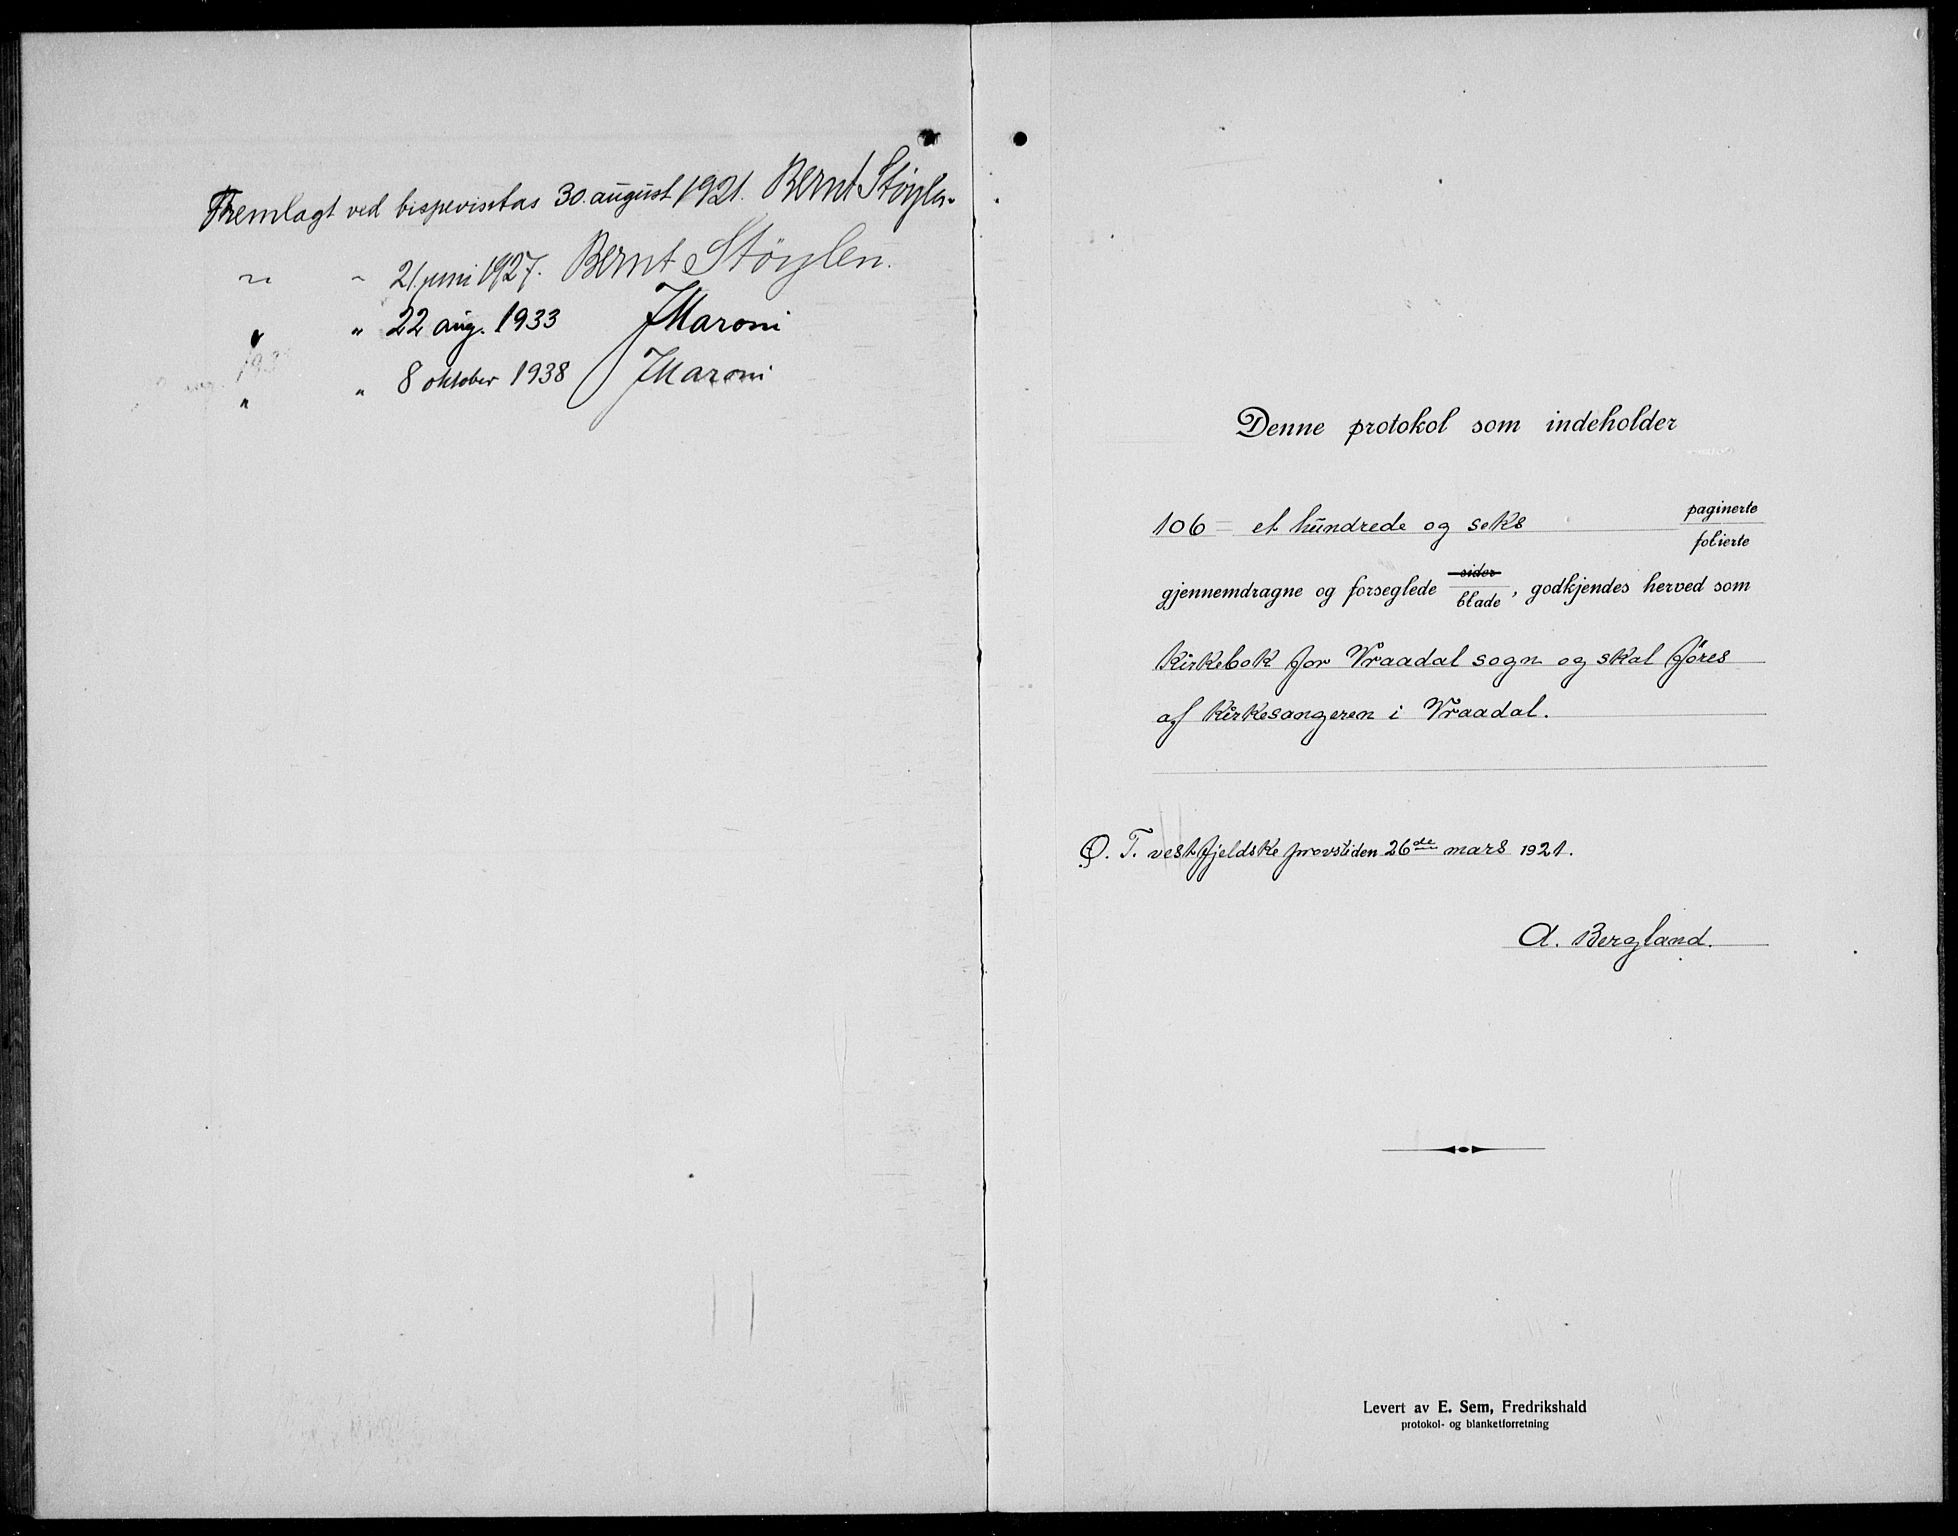 Fremlagt ved bispevisitas 30. august 1921. Bernt Støylen.
" " 21. juni 1927. Bernt Støylen.
" " 22 aug. 1933 J Maroni
" " 8 oktober 1938 J Maroni
Denne protokol som indeholder
106 = et hundrede og seks paginerte
folierte
gjennemdragne og forseglede sider
blade, godkjendes herved som
Kirkebok for Vraadal sogn og skal føres
af Kirkesangeren i Vraadal.
Ø. T. vestfjeldske provsti den 26de mars 1921.
A. Bergland.
Levert av E. Sem, Fredrikshald
protokol- og blanketforretning